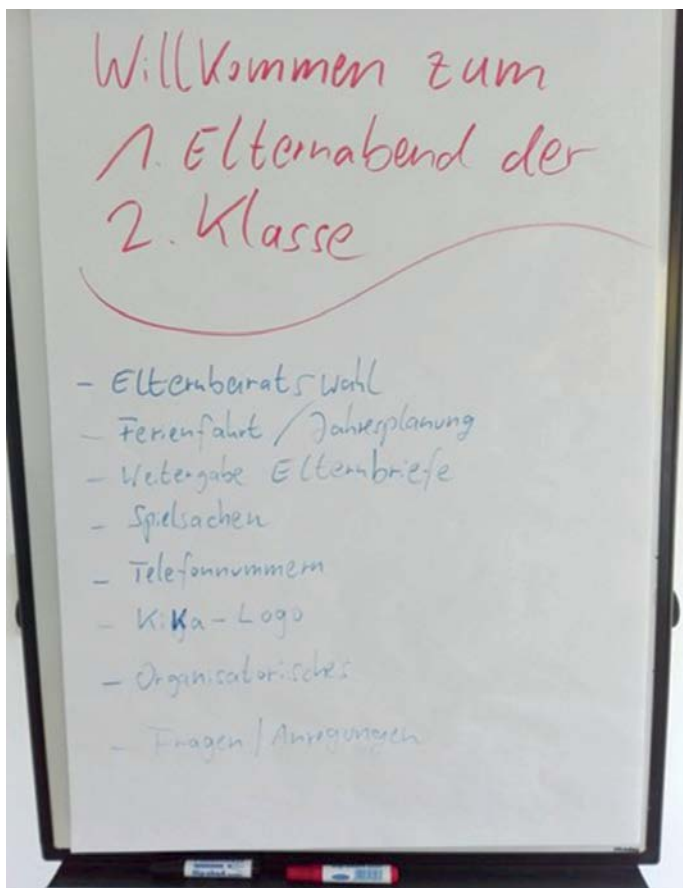 Willkommen zum
1. Elternabend der
2. Klasse
- Elternbeiratswahl
- Ferienfahrt / Jahresplanung
- Weitergabe Elternbriefe
- Spielsachen
- Telefonnummern
- KiKa-Logo
- Organisatorisches
- Fragen / Anregungen